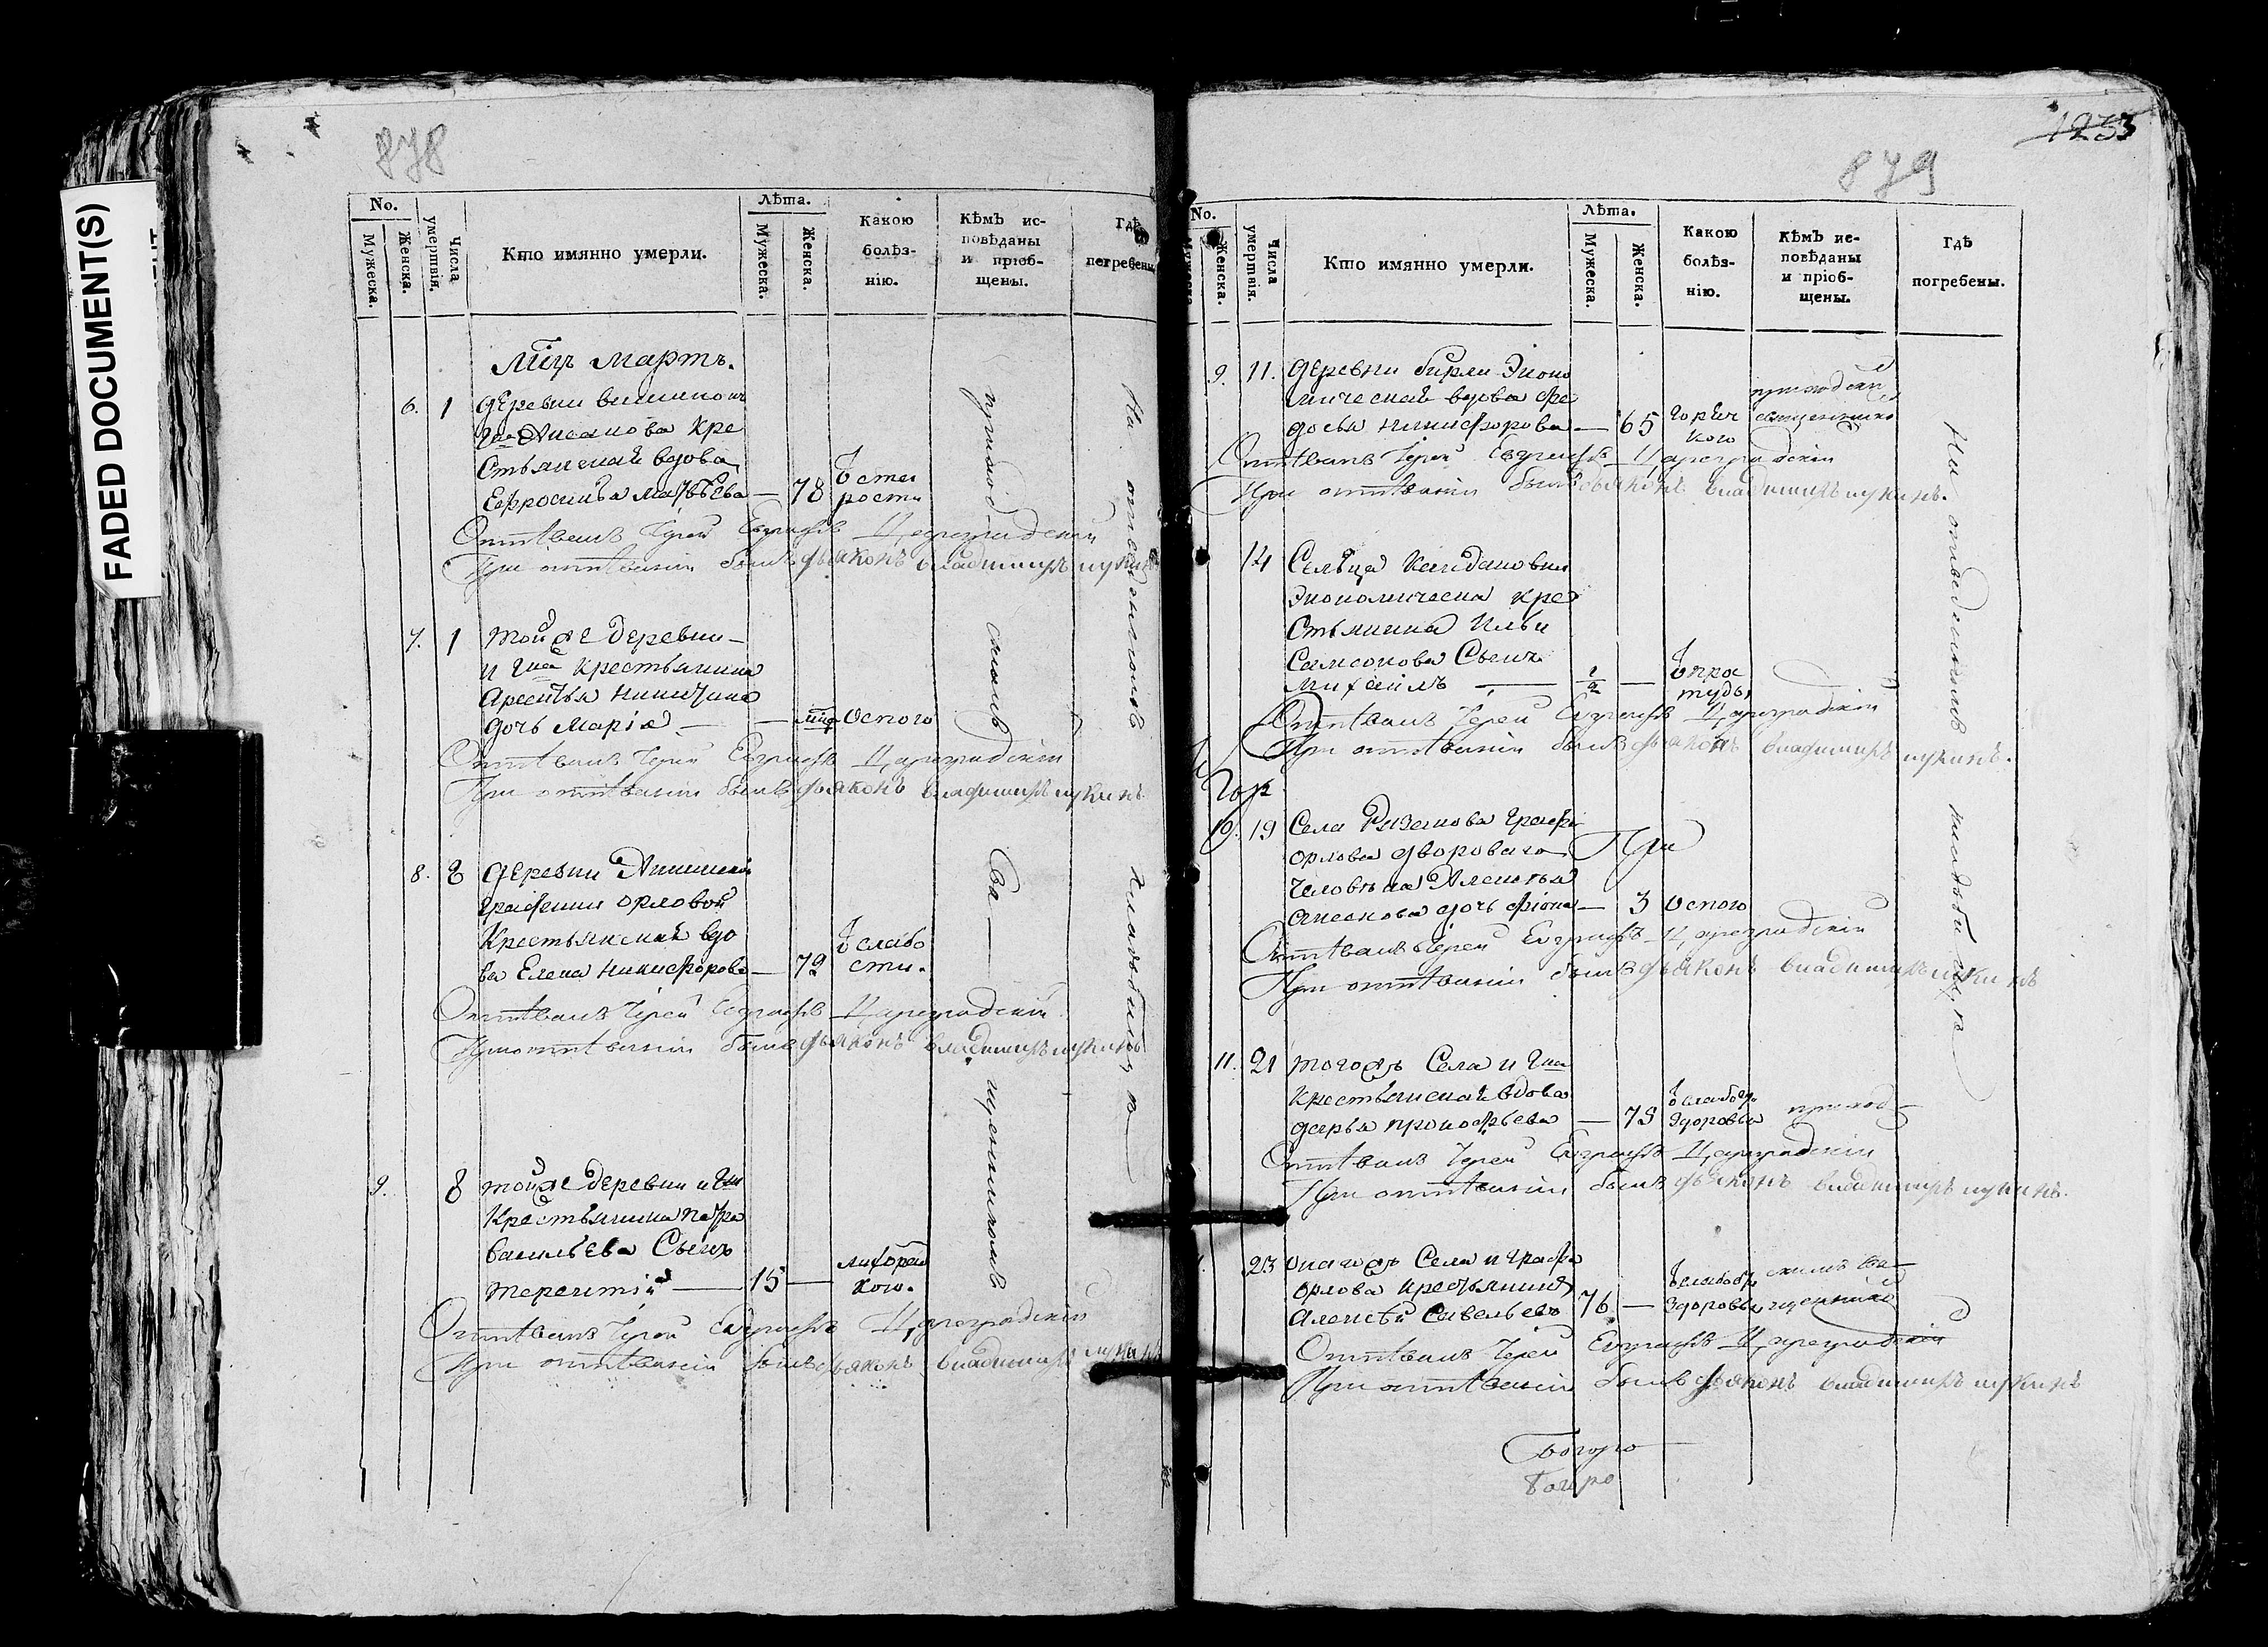 FADED DOCUMENT(S)
878
No.
Мужеска.
Женска.
Числа умертвія.
Кто имянно умерли.
Лѣта.
Мужеска.
Женска.
Какою болѣз-
нію.
Кѣмъ ис-
повѣданы
и пріоб-
щены.
Гдѣ
погребены
Мцъ Мартъ.
6. 1 деревни
Анسанова кре
стьянская вдова
Ефросинья Матвѣева — 78 ѿ ста
рости
Отпѣвалъ Іерей Евграфъ Цареградскій
При отпѣваніи былъ дьяконъ владимиръ лукинъ
7. 1 той же деревни —
и Гна крестьянина
Арсентья
дочь Марія — — мцъ оспою
Отпѣвалъ Іерей Евграфъ Цареградскій
При отпѣваніи былъ дьяконъ владимиръ лукинъ
8. 2 деревни
графини орловой
крестьянская вдо
ва Елена никифорова — 72 ѿ слабо
сти.
Отпѣвалъ Іерей Евграфъ Цареградскій
При отпѣваніи былъ дьяконъ владимиръ лукинъ
9. 8 той же деревни и Гни
крестьянина петра
васильева Сынъ
терентій — 15 — лихорад
кою.
Отпѣвалъ Іерей Евграфъ Цареградскій
При отпѣваніи былъ дьяконъ владимиръ лукинъ
приход скимъ Свя — щенникомъ
На отведенномъ кладбищѣ
1233
879
No.
Мужеска
Женска.
Числа умертвія.
Кто имянно умерли.
Лѣта.
Мужеска.
Женска.
Какою
болѣз-
нію.
Кѣмъ ис-
повѣданы
и пріоб-
щены.
Гдѣ
погребены.
9. 11. деревни бирли Эконо
мическая вдова фе
досья никифорова — 65 горяч
кою
приходски
священнико
Отпѣвалъ Іерей Евграфъ Цареградскій
При отпѣваніи былъ дьяконъ владимиръ лукинъ.
14 Сельца
Экономическа кре
стьянина Ильи
Самсонова Сынъ
михаилъ — 1/2 — ѿ прос
туды
Отпѣвалъ Іерей Евграфъ Цареградскій
При отпѣваніи былъ дьяконъ владимиръ лукинъ.
10. 19 Села графа
орлова двороваго При
человѣка Алексѣя
дочь фіона — 3 оспою
Отпѣвалъ Іерей Евграфъ Цареградскій
При отпѣваніи былъ дьяконъ владимиръ лукинъ
11. 21 тогожъ Села и Гна
крестьянская вдова
дарья прокофьева — 75 ѿ слабого
здоровья приход
Отпѣвалъ Іерей Евграфъ Цареградскій
При отпѣваніи былъ дьяконъ владимиръ лукинъ.
23 онагожъ Села и графа
орлова крестьянинъ
алексѣй савельевъ 76 — ѿ слабого
здоровья скимъ свя—
щенник
Отпѣвалъ Іерей Евграфъ Цареградскій
При отпѣваніи былъ дьяконъ владимиръ лукинъ
На отведенномъ кладбищѣ
Богоро
Богоро